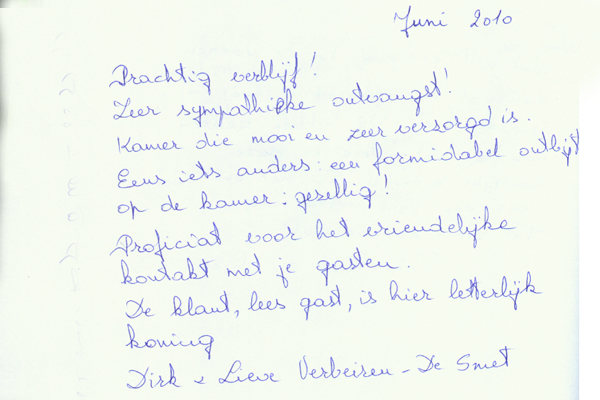 Juni 2010
Prachtig verblijf!
Zeer sympathieke ontvangst!
Kamer die mooi en zeer versorgd is.
Eens iets anders: een formidabel ontbijt
op de kamer: gezellig!
Proficiat voor het vriendelijke
kontakt met je gasten.
De klant, lees gast, is hier letterlijk
koning
Dirk & Lieve Verbeiren - De Smet